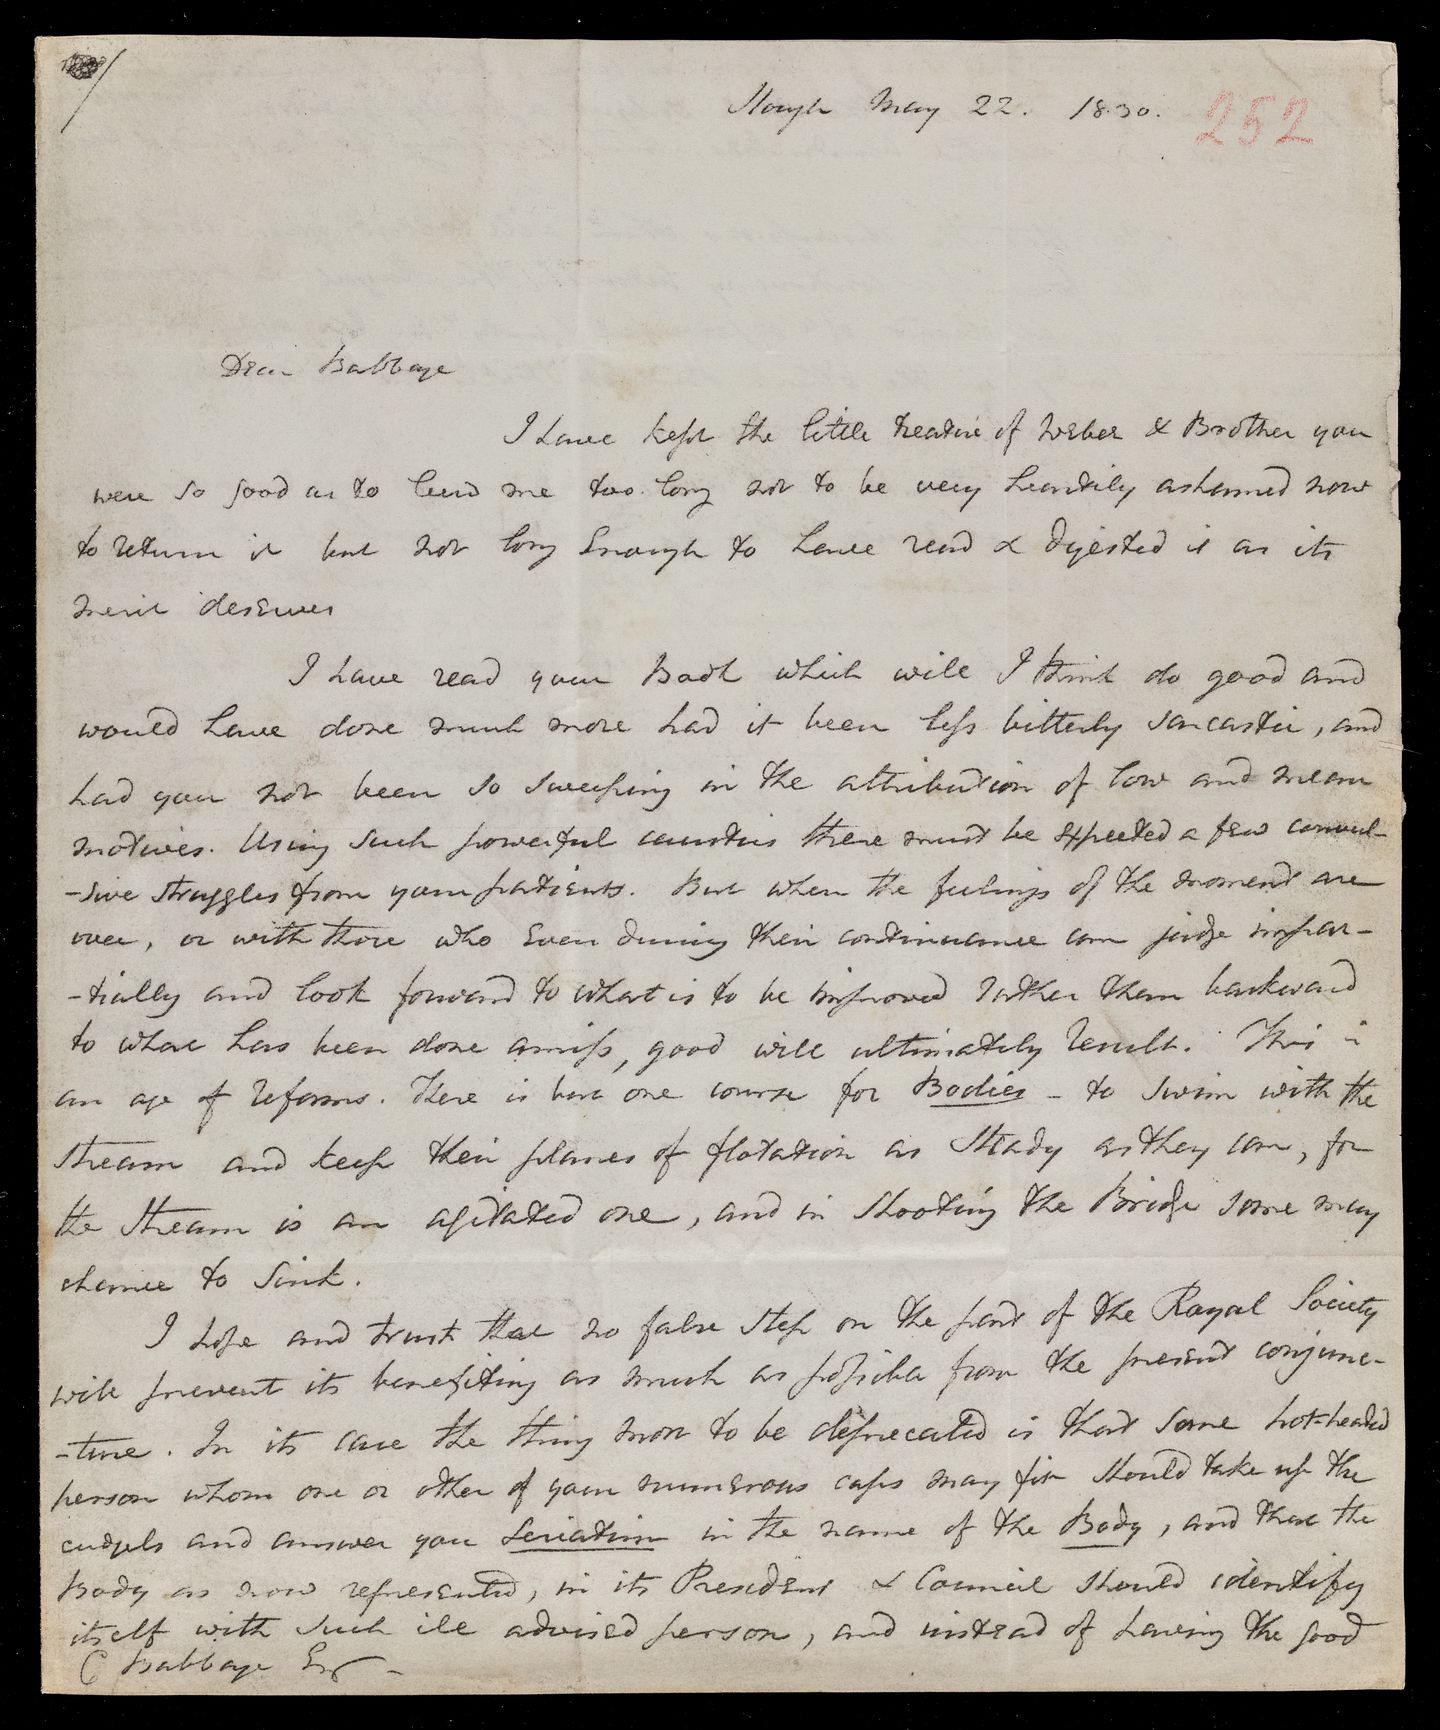 Slough May 22. 1830.
252
Dear Babbage
I have kept the little treatise of Weber & Brother you
were so good as to lend me too long not to be very heartily ashamed now
to return it but not long enough to have read & digested it as its
merit deserves
I have read your Book which will I think do good and
would have done much more had it been less bitterly sarcastic, and
had you not been so sweeping in the attribution of low and mean
motives. Using such powerful caustics there must be expected a few convul-
-sive struggles from your patients. But when the feelings of the moment are
over, or with those who even during their continuance can judge impar-
-tially and look forward to what is to be improved rather than backward
to what has been done amiss, good will ultimately result. This is
an age of reforms. There is but one course for Bodies - to swim with the
stream and keep their planes of flotation as steady as they can, for
the stream is an agitated one, and in shooting the Bridge some may
chance to sink.
I hope and trust that no false step on the part of the Royal Society
will prevent its benefiting as much as possible from the present conjunc-
-ture. In its case the thing most to be deprecated is that some hot-headed
person whom one or other of your numerous caps may fit should take up the
cudgels and answer you seriatim in the name of the Body, and that the
Body as now represented, in its President & Council should identify
itself with such ill advised person, and instead of having the good
C Babbage Esq -